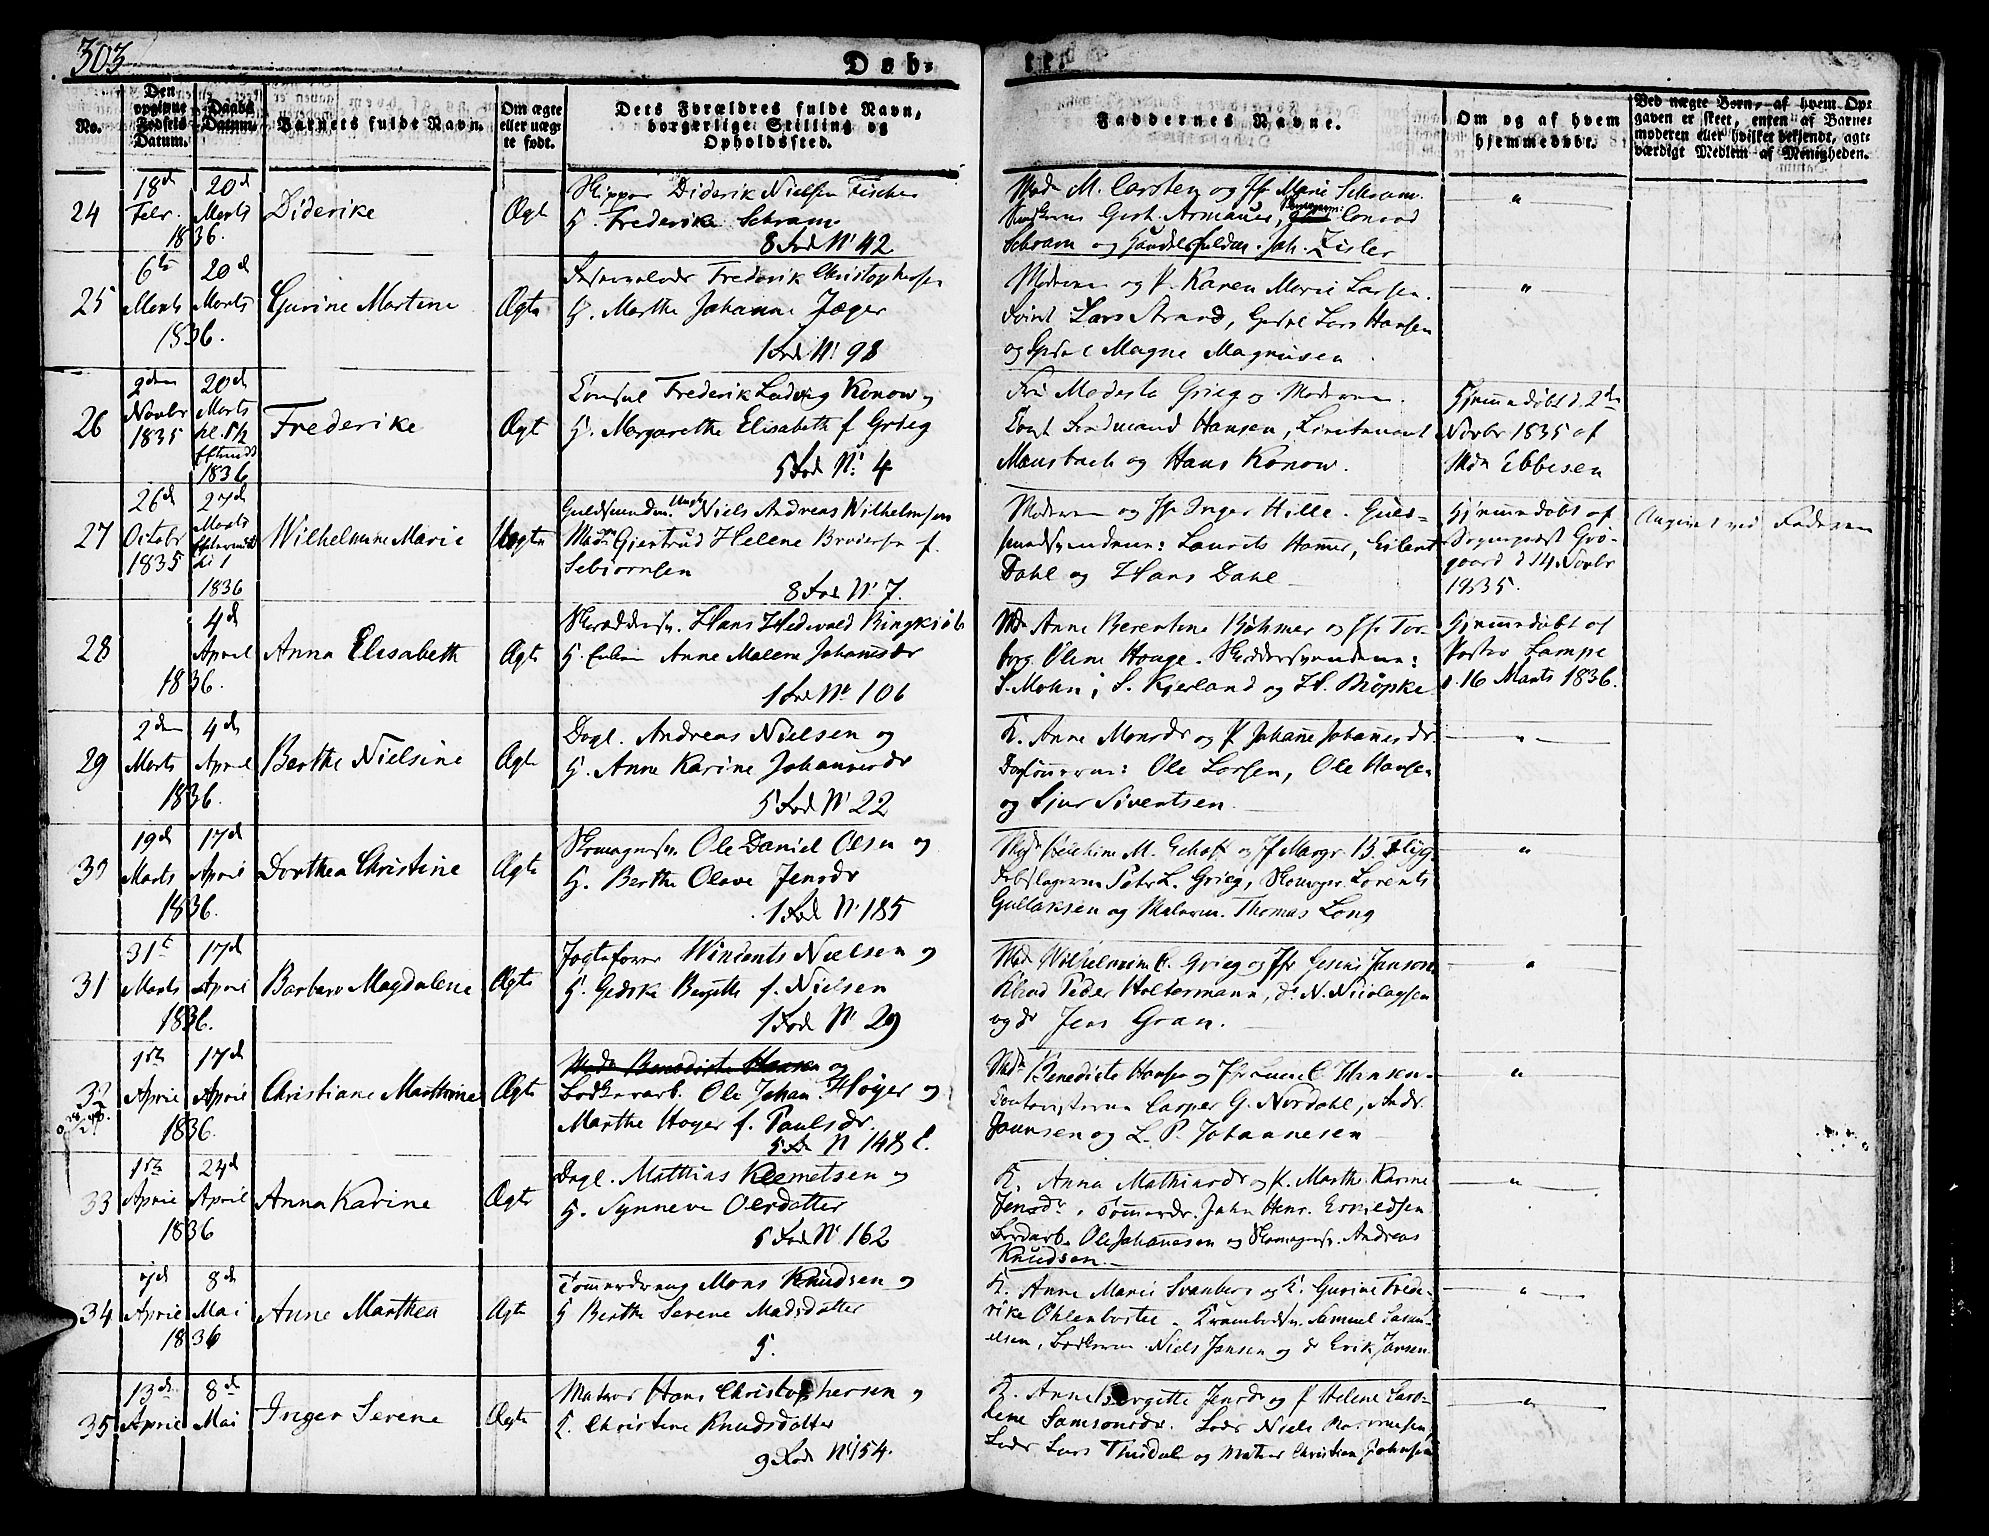 303
Døb-
te.
No.
Den opgivne Fødsels Datum.
Daabs Datum.
Barnets fulde Navn.
Om ægte eller uægte født.
Dets Forældres fulde Navn, borgerlige Stilling og Opholdssted.
Faddernes Navne.
Om og af hvem hjemmedøbt.
Ved uægte Børn, af hvem Opgaven er skeet, enten af Barnemoderen eller hvilket bekjendt, agtværdigt Medlem af Menigheden.
24
18d Febr.
20d Marts
1836.
Diderike
Ægt
Skipper Diderik Nielsen Fischer
H. Frederike Schram
8 Rod No 42
Mad. M. Carsten og Jfr Marie Schram.
Gerh. Armauer, Conrad
Schram og Joh. Zisler
"
25
6te Marts
20d Marts
1836.
Gurine Martine
Ægte
Frederik Christophersen
H. Marthe Johanne Jæger
1 Rod No 98
Moderen og P. Karen Marie Larsen.
Lars Strand, Lars Hansen
og Magne Magnusen
"
26
2den Novbr 1835
20d Marts
1836
Frederike
Ægt
Consul Frederik Ludvig Konow og
H. Margarethe Elisabeth f Grieg
5 Rod No 4
Modesta Grieg og Moderen.
Ferdinand Hansen, Lieutenant
Mansbach og Hans Konow.
Hjemmedøbt d. 2den
Novbr 1835 af
Mdm Ebbesen
27
26d Octobr 1835
27d Marts
1836
Wilhelmine Marie
Uægte
Guldsmedsv. Ungk. Niels Andreas Wilhelmsen
Mad. Gjertrud Helene Brodersen f.
Sebiørnsen
8 Rod No 7.
Moderen og Jfr Inger Hille. Guld-
smedsvendene: Laurits Hammer, Eilert
Dahl og Hans Dahl
Hjemmedøbt af
Sognepræst Grø-
gaard d 14 Novbr
1835.
Angivet ved Faderen
28
4d April
1836.
Anna Elisabeth
Ægte
Skræddersv. Hans Hedevald Ringkiøb
H. Anne Malene Johansdr
1 Rod No 106
Md. Anne Berentine Bøhmer og Jfr Tor-
borg Oline Hauge. Skræddersvendene:
S. Mohn, S. Kjerland og H. Brøpke
Hjemmedøbt af
Pastor Lampe
d. 16 Marts 1836.
29
2den Marts
4de April
1836.
Berthe Nielsine
Ægte
Dagl. Andreas Nielsen og
H. Anne Karine Johannesdr
5 Rod No 22
K. Anne Monsdr og P Johanne Johannesdr
Ole Larsen, Ole Hansen
og Sjur Sivertsen.
"
30
19d Marts
17d April
1836.
Dorthea Christine
Ægte
Skomagersv. Ole Daniel Olsen og
H. Berthe Olave Jensdr
1 Rod No 185
M. Eckhoff og Jf Margr. B. Flyg.
Petr L. Grieg, Skomager Lorents
Gullaksen og Thomas Lang
"
31
31t Marts
17d April
1836.
Barbara Magdalene
Ægte
Wincents Nielsen og
H. Geske Bergitte f. Nielsen
1 Rod No 29
Mad Wilhelmine C. Grieg og Jfr Gesine Janson
Peder Holtermann, do N. Nicolaysen
og do Jens Gran.
"
32
1ste April
17d April
1836.
Christiane Marthine
Ægte
Mad. Benedicte Hansen og
Bødkerarb. Ole Johan Høyer og
Marthe Høyer f. Paulsdr.
5 Rd N 148 C.
Md Benedicte Hansen og C. Hansen
Casper G. Nordahl, Andr.
Jaensen og L. P. Johannesen
"
33
1ste April
24d April
1836
Anna Karine
Ægte
Dagl. Matthias Klemetsen og
H. Synneve Olesdatter
5 Rod No 162
K. Anna Mathiasdr og P. Marthe Karine
Jensdr, Tømmerdr. John Henr. Eskildsen
Ole Johannesen og Skomagersv. Andreas
Knudsen.
"
34
7d April
8de Mai
1836
Anne Marthea
Ægte
Tømmerdreng Mons Knudsen og
H Berthe Serene Madsdatter
5.
K. Anne Marie Svanberg og K. Gurine Frede-
rike Ohlenbostel. Samuel Samu-
elsen, Bødkeren Niels Jansen og do Erik Jansen
"
35
13de April
8de Mai
Inger Serene
Ægte
Matros Hans Christophersen og
K. Christine Knudsdatter
9 Rode No 154.
K. Anne Bergitte Jensdr og P Helene Cath-
rine Samsonsdr. Lods Niels Rasmussen,
Lods Lars Thisdal og Matros Christian Johnsen
"